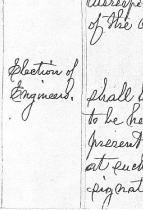 of the
Election of
Engineers.
shall b
to be he
present
at such
signat